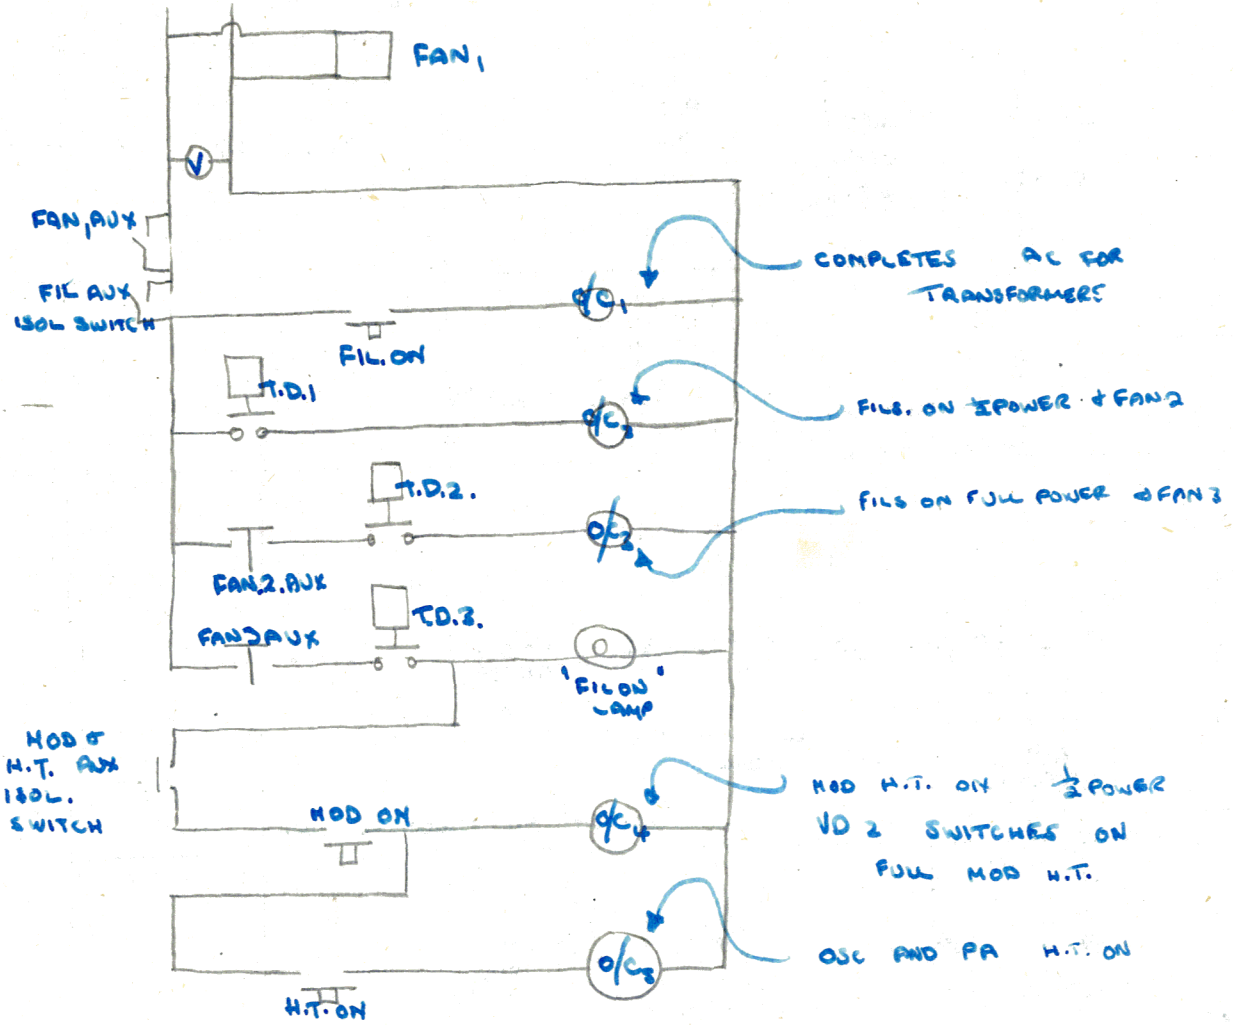 FAN 1
V
FAN, AUX
FIL AUX
ISOL SWITCH
COMPLETES AC FOR
TRANSFORMERS
O/C 1
FIL. ON
T.D.1
O/C
FILS. ON ½ POWER & FAN 2
T.D.2.
FILS ON FULL POWER & FAN 3
O/C
FAN.2.AUX
T.D.3.
FAN 3 AUX
"FIL ON"
LAMP
MOD &
H.T. AUX
ISOL.
SWITCH
MOD ON
O/C 4
MOD H.T. ON ½ POWER
VD 2 SWITCHES ON
FULL MOD H.T.
O/C 5
OSC AND PA H.T. ON
H.T. ON